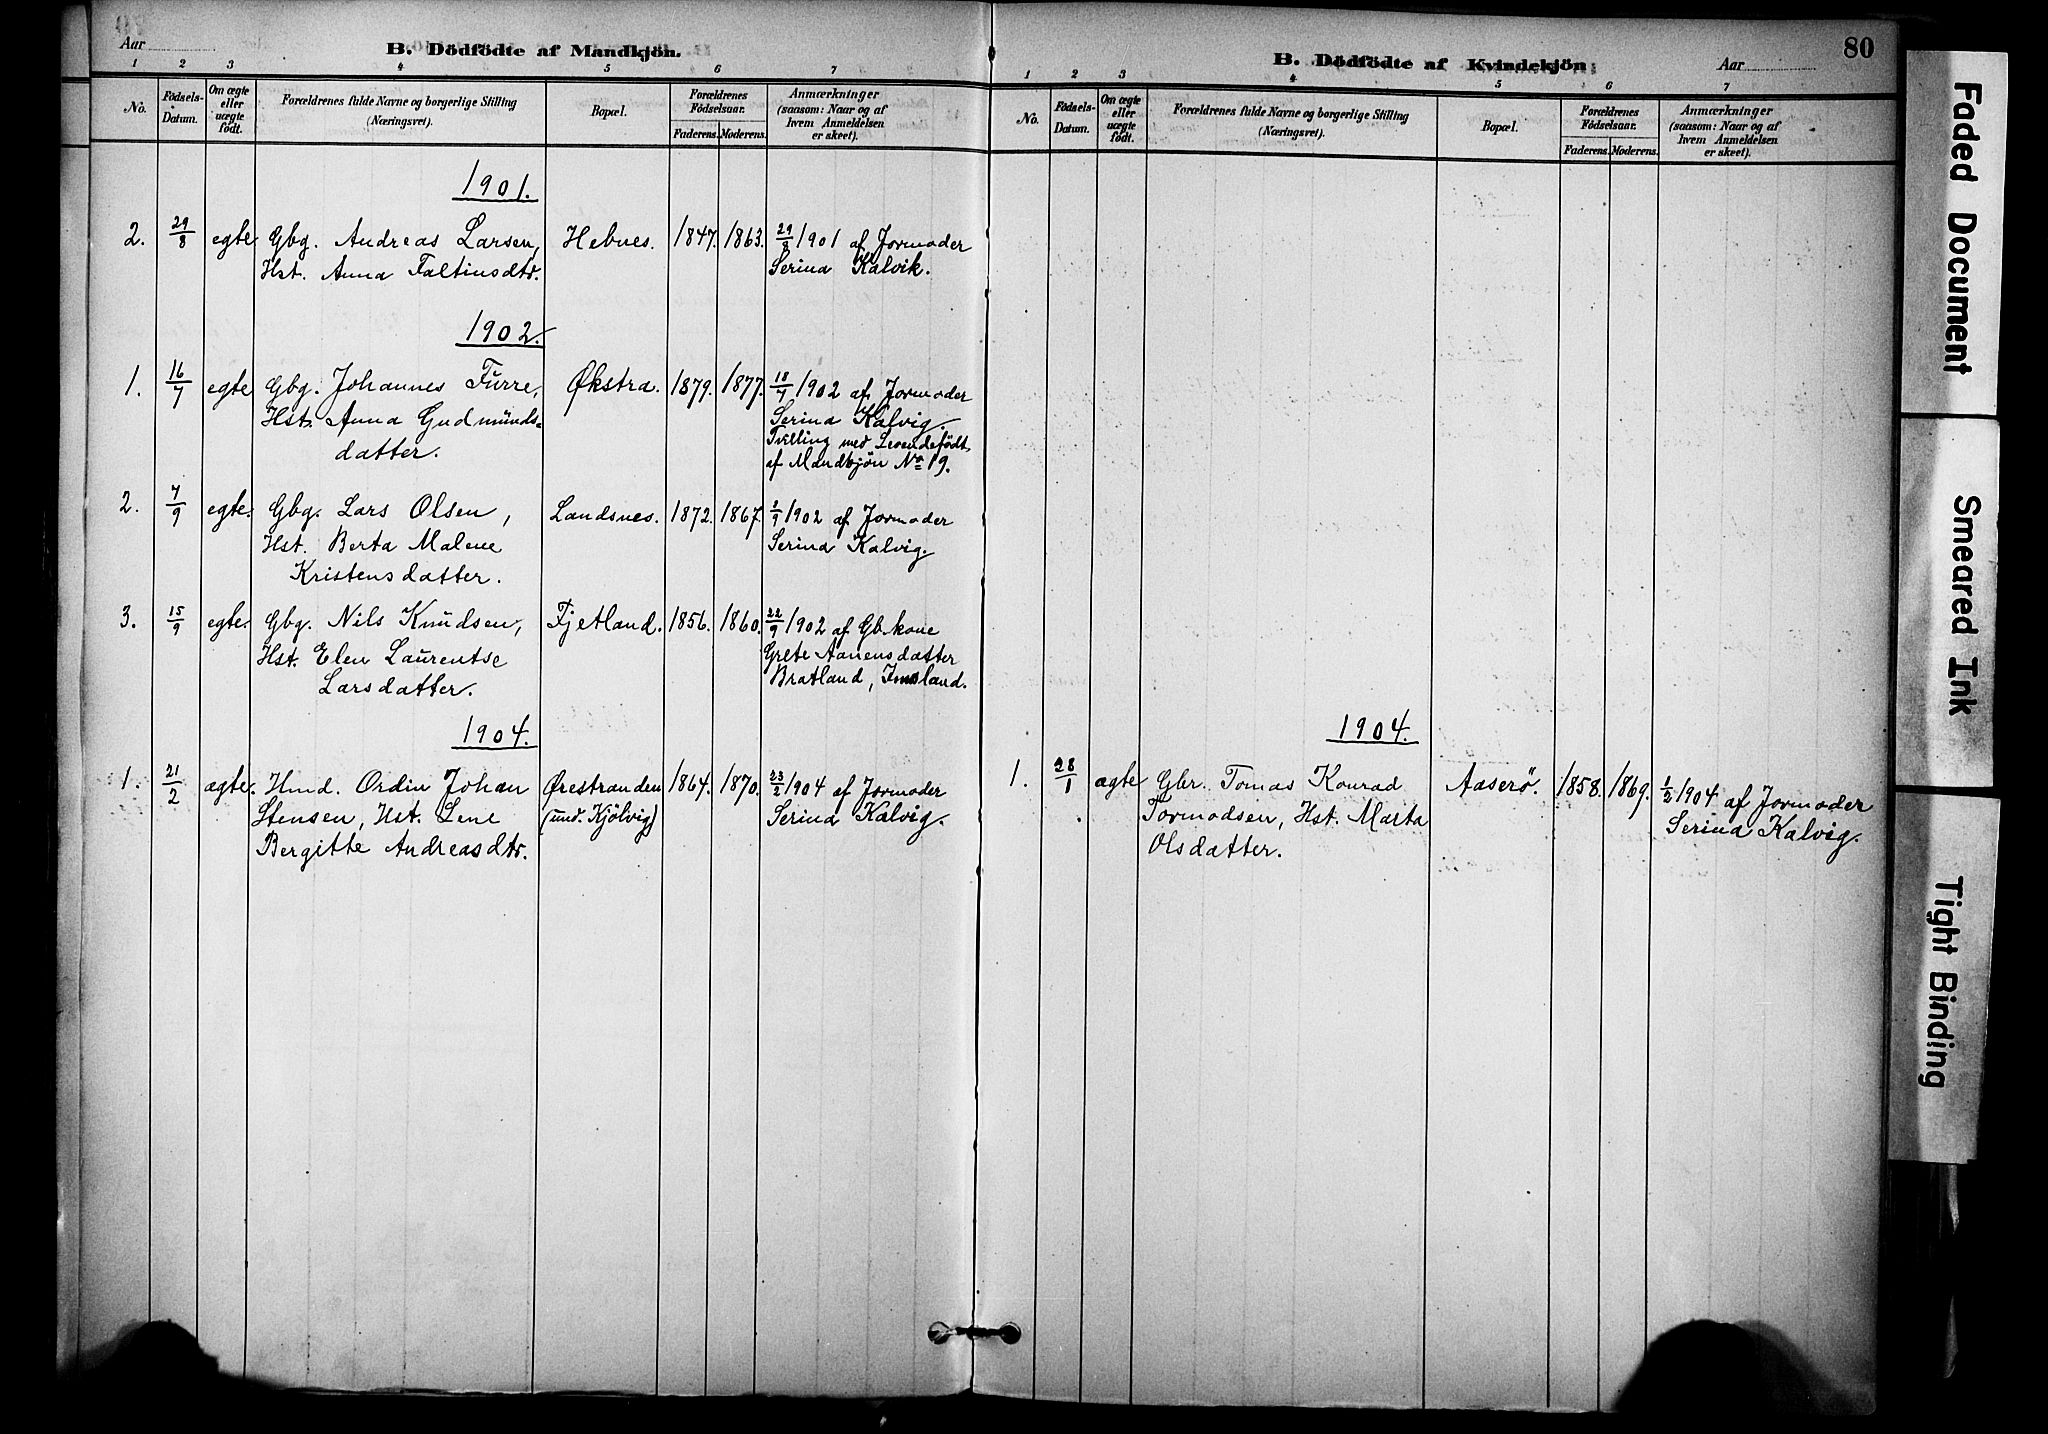 Aar
B. Dödfödte af Mandkjön.
1 2 3 4 5 6 7
No.
Födsels-Datum.
Om ægte eller uægte födt.
Forældrenes fulde Navne og borgerlige Stilling (Næringsvei).
Bopæl.
Forældrenes Födselsaar.
Faderens. Moderens.
Anmærkninger (saasom: Naar og af hvem Anmeldelsen er skeet).
1901.
2. 29/8 egte Gbg. Andreas Larsen, Hebnes. 1847. 1863. 29/8 1901 af Jormoder
Hst. Anna Faltinsdtr. Serina Kalvik.
1902.
1. 16/7 egte Gbg. Johannes Furre, Økstra. 1879. 1877. 18/7 1902 af Jormoder
Hst. Anna Gudmunds= Serina Kalvig.
datter. Tvilling med Levendefödt
af Mandkjön No 19.
2. 7/9 egte. Gbg. Lars Olsen, Landsnes. 1872. 1867. 1902 af Jormoder
Hst. Berta Malene Serina Kalvig.
Kristensdatter.
3. 15/9 egte. Gbg. Nils Knudsen, Fjetland. 1856. 1860. 22/9 1902 af Gb.kone
Hst. Elen Laurentse Grete Aanensdatter
Larsdatter. Bratland, Imsland.
1904.
1. 21/2 ægte. Hmd. Ordin Johan Ørestranden 1864. 1870. 23/2 1904 af Jormoder
Stensen, Hst. Lene (und. Kjölvig) Serina Kalvig.
Bergitte Andreasdtr.
80
B. Dödfödte af Kvindekjön
Aar
1 2 3 4 5 6 7
No.
Födsels-Datum.
Om ægte eller uægte födt.
Forældrenes fulde Navne og borgerlige Stilling (Næringsvei).
Bopæl.
Forældrenes Födselsaar.
Faderens. Moderens.
Anmærkninger (saasom: Naar og af hvem Anmeldelsen er skeet).
1904.
1. 28/1 ægte Gbr. Tomas Konrad Aaserö. 1858. 1869. 1/2 1904 af Jormoder
Tormodsen, Hst. Marta Serina Kalvig.
Olsdatter.
Faded Document
Smeared Ink
Tight Binding